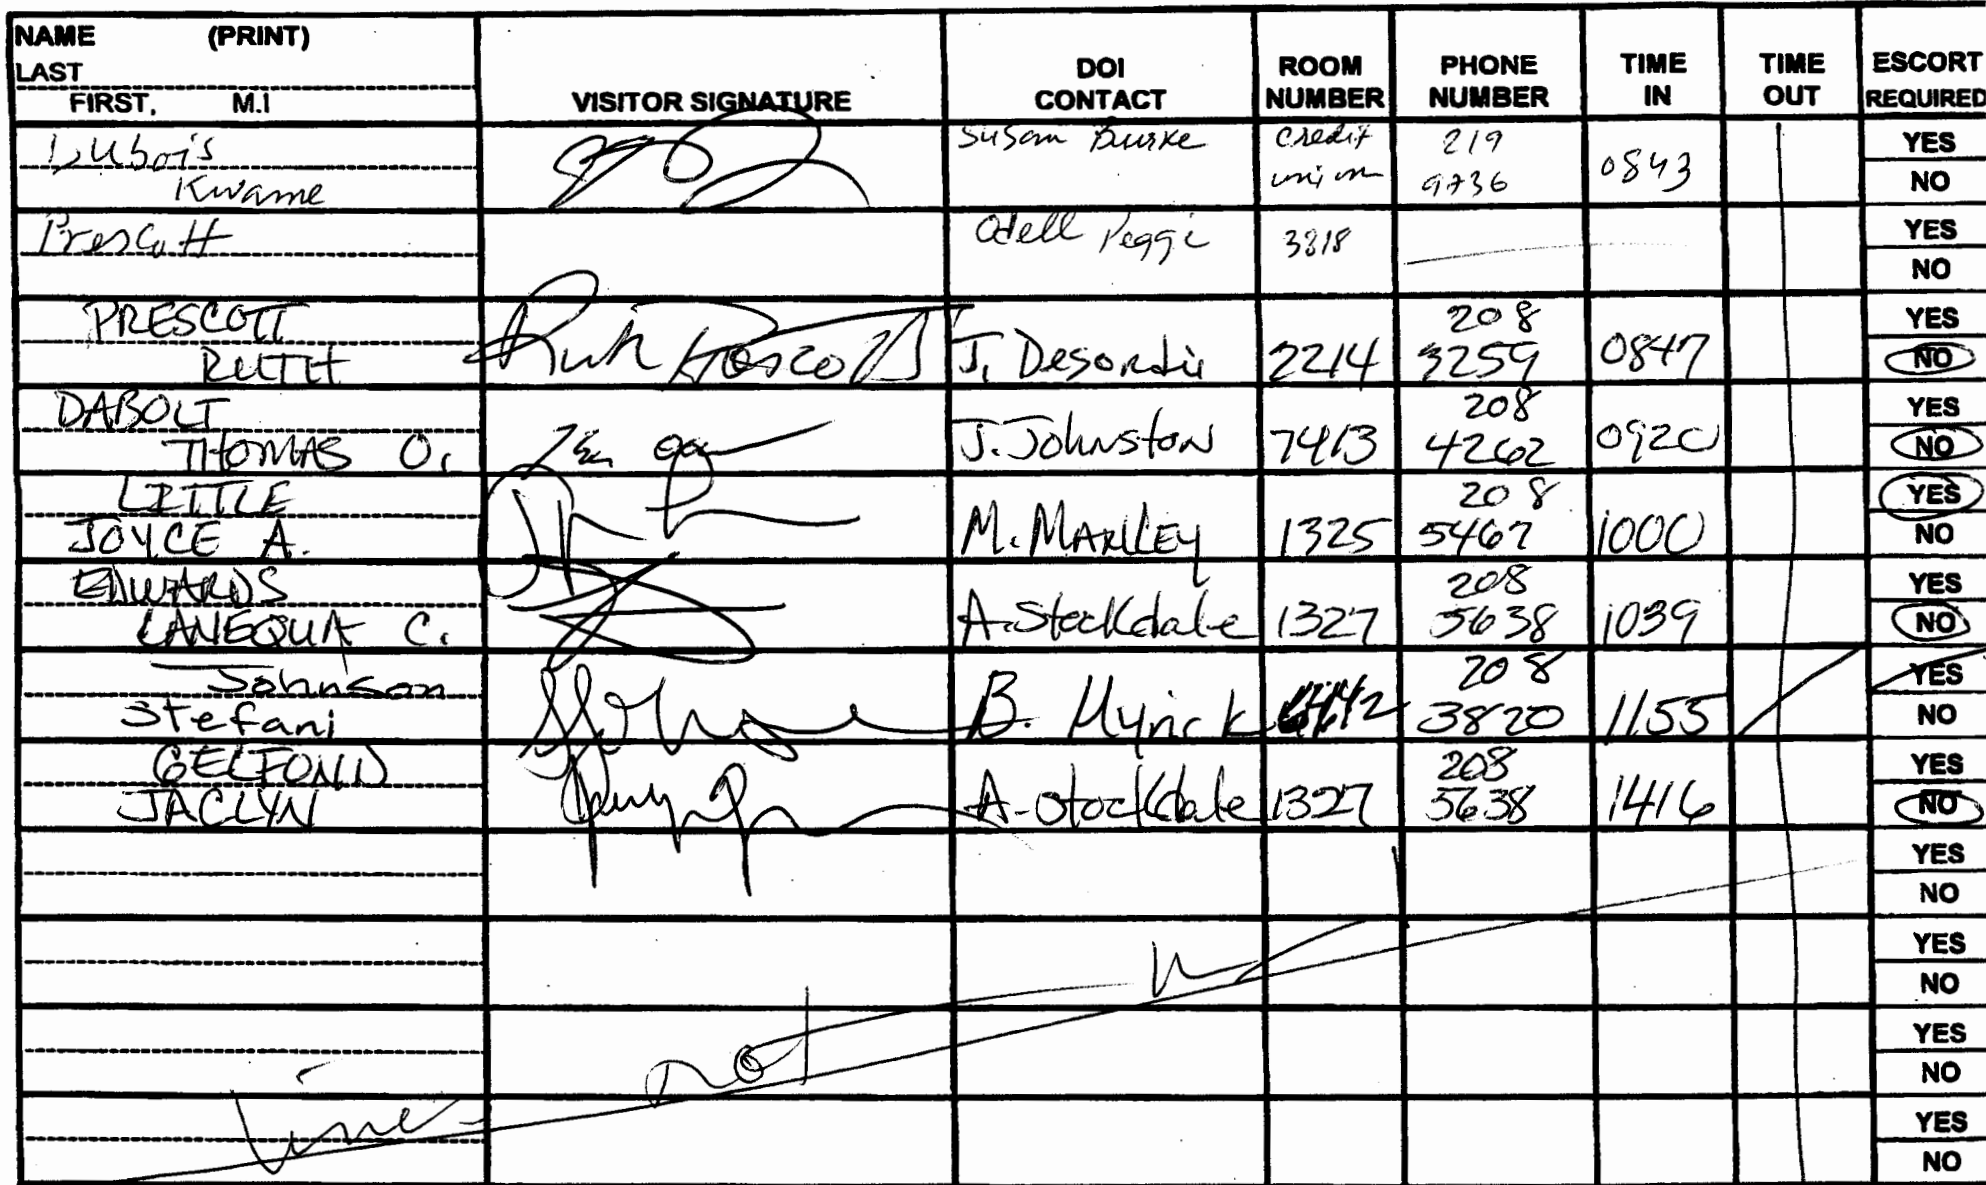 NAME (PRINT)
LAST
FIRST, M.I
VISITOR SIGNATURE
DOI
CONTACT
ROOM
NUMBER
PHONE
NUMBER
TIME
IN
TIME
OUT
ESCORT
REQUIRED
Dubois
Kwame
Susan Burke
Credit
union
219
9736
0843
YES
NO
Prescott
Odell Peggi
3818
YES
NO
PRESCOTT
RUTH
Ruth Prescott
J. Desordie
2214
208
3259
0847
YES
NO
DABOLT
THOMAS O.
J. Johnston
7413
208
4262
0920
YES
NO
LITTLE
JOYCE A.
1325
208
5467
1000
YES
NO
EDWARDS
LANEQUA C.
A. Stockdale
1327
208
5638
1039
YES
NO
Johnson
Stefani
B. Myrick
208
3820
1155
YES
NO
GELFOND
JACLYN
A. Stockdale
1327
208
5638
1416
YES
NO
YES
NO
YES
NO
YES
NO
not
YES
NO